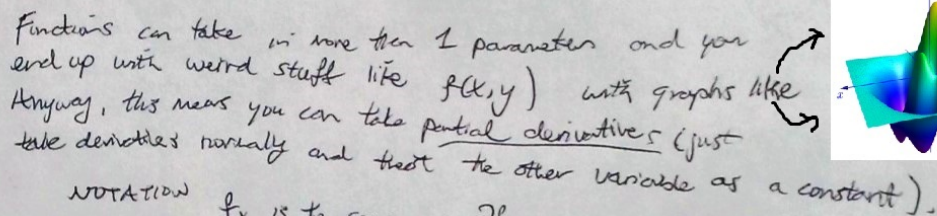 Functions can take in more then 1 parameter and you
end up with weird stuff like f(x,y) with graphs like
Anyway, this means you can take partial derivatives (just
take derivatives normally and treat the other variable as a constant).
NOTATION fx is
x